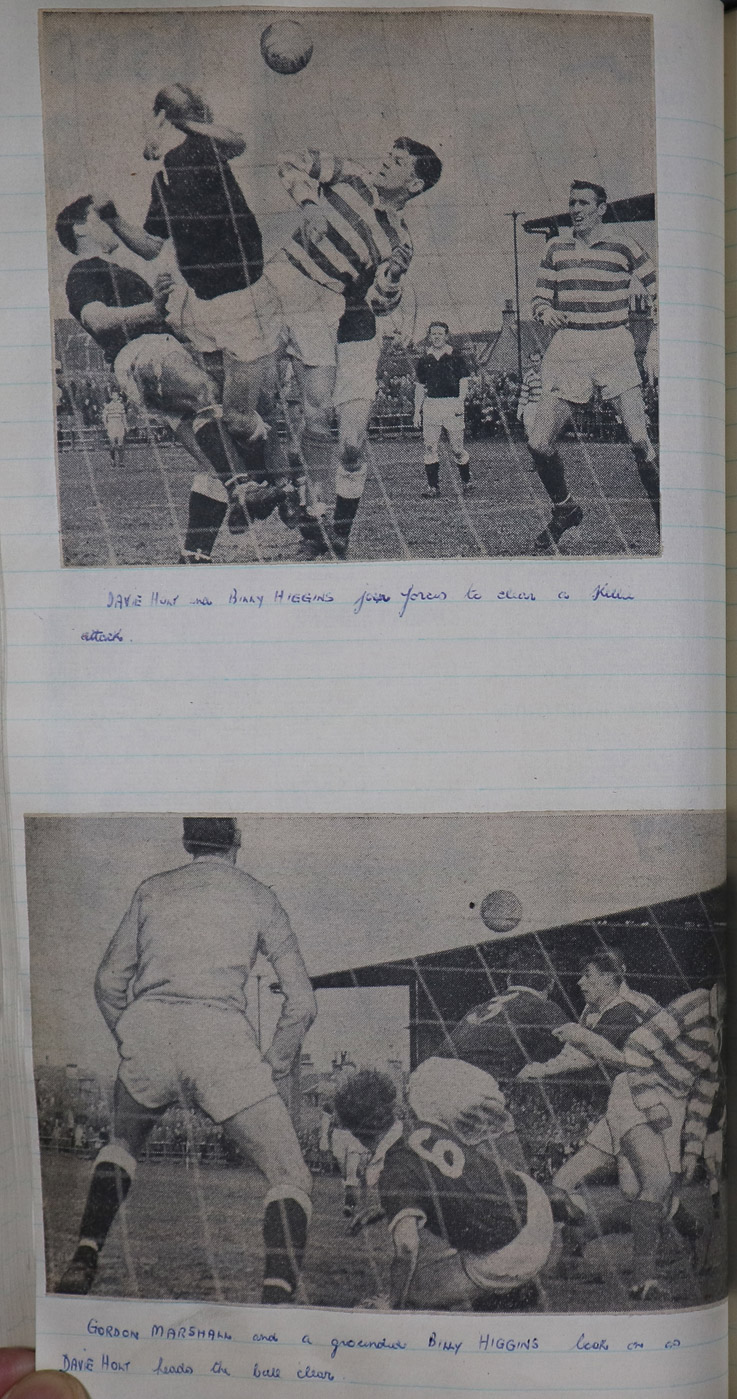 DAVIE HOLT and BILLY HIGGINS join forces to clear a Killie
attack.
6
GORDON MARSHALL and a grounded BILLY HIGGINS look on as
DAVIE HOLT heads the ball clear.